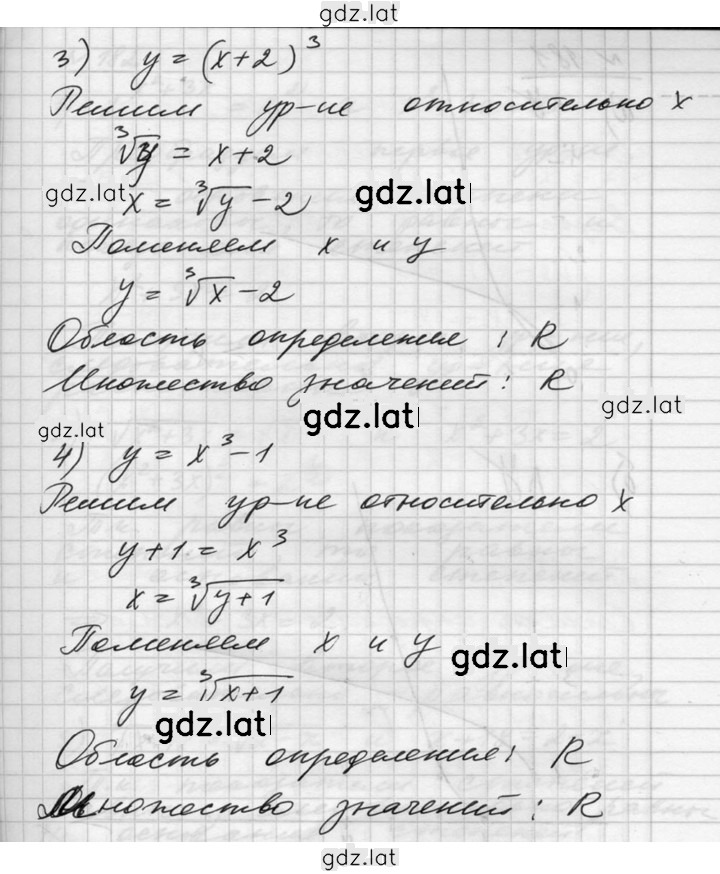 gdz.lat
3) y = (x+2)³
Решим ур-ие относительно x
∛y = x+2
gdz.lat x = ∛y - 2 gdz.lat
Поменяем x и y
y = ∛x - 2
Область определения : R
Множество значений : R
gdz.lat gdz.lat
gdz.lat
4) y = x³ - 1
Решим ур-ие относительно x
y + 1 = x³
x = ∛(y+1)
Поменяем x и y gdz.lat
y = ∛(x+1)
gdz.lat
Область определения : R
Множество значений : R
gdz.lat